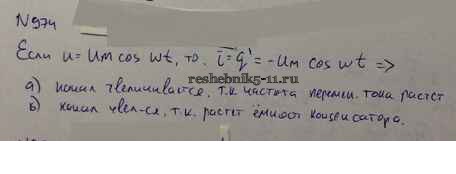 N974
Если u = Um cos wt, то. i = q' = -Um cos wt =>
reshebnik5-11.ru
а) накал увеличивается, т.к. частота перемен. тока растет
б) накал увел-ся, т.к. растет ёмкост конденсатора.